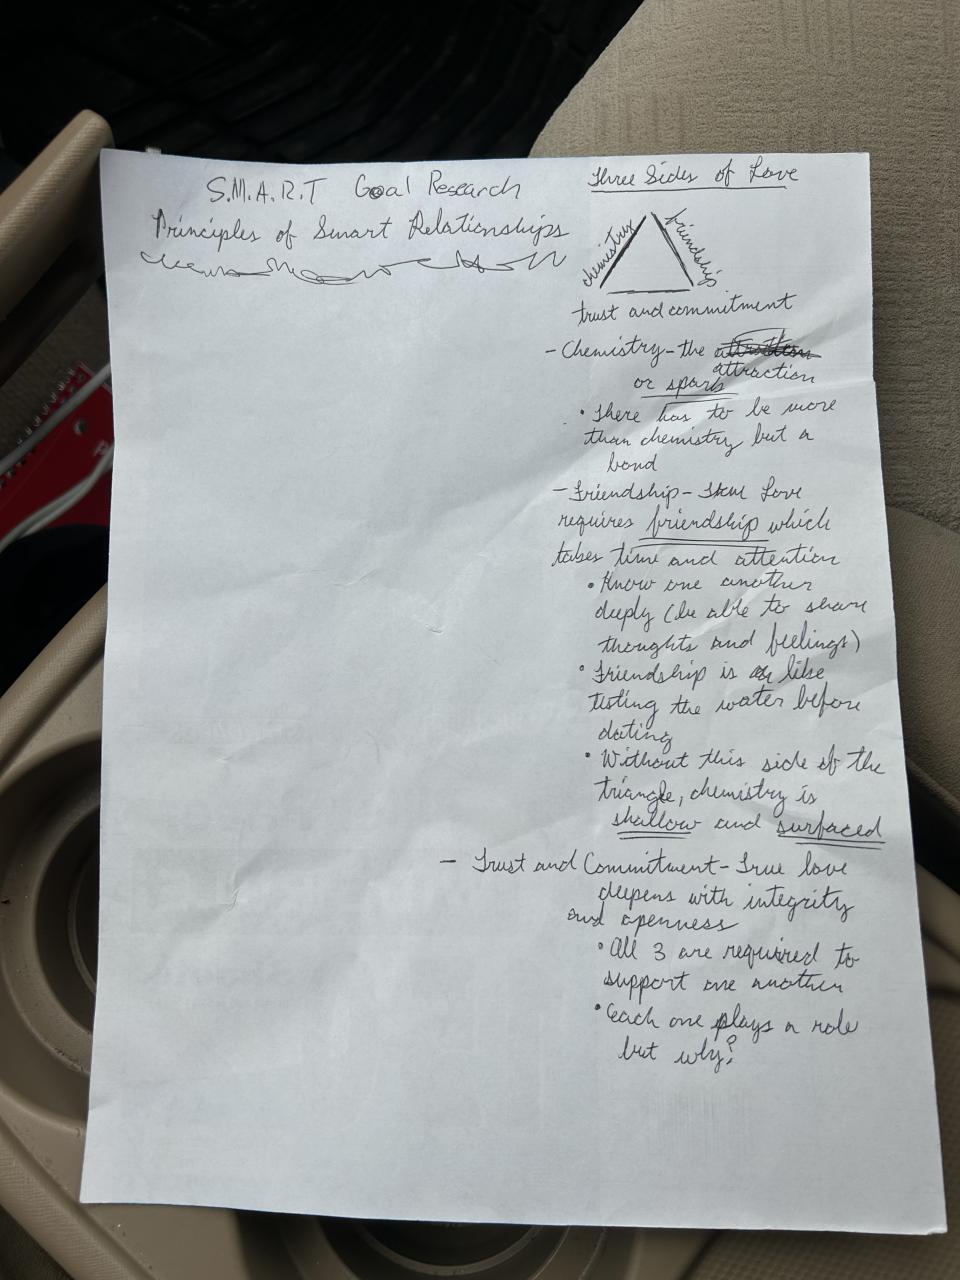 S.M.A.R.T Goal Research
Principles of Smart Relationships
Three Sides of Love
chemistry
friendship
trust and commitment
- Chemistry - the
attraction
or spark
• There has to be more
than chemistry but a
bond
- Friendship - True Love
requires friendship which
takes time and attention
• Know one another
deeply (be able to share
thoughts and feelings)
• Friendship is like
testing the water before
dating
• Without this side of the
triangle, chemistry is
shallow and surfaced
- Trust and Commitment - True love
deepens with integrity
and openness
• All 3 are required to
support one another
• Each one plays a role
but why?